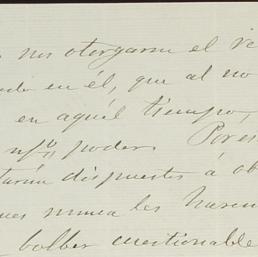 nos otorgarn el ve
do en él, que al no
en aquél tiempo,
nfo poder. Pores
tarán dispuestos á ob
ues nunca les haren
bolber cuestionable